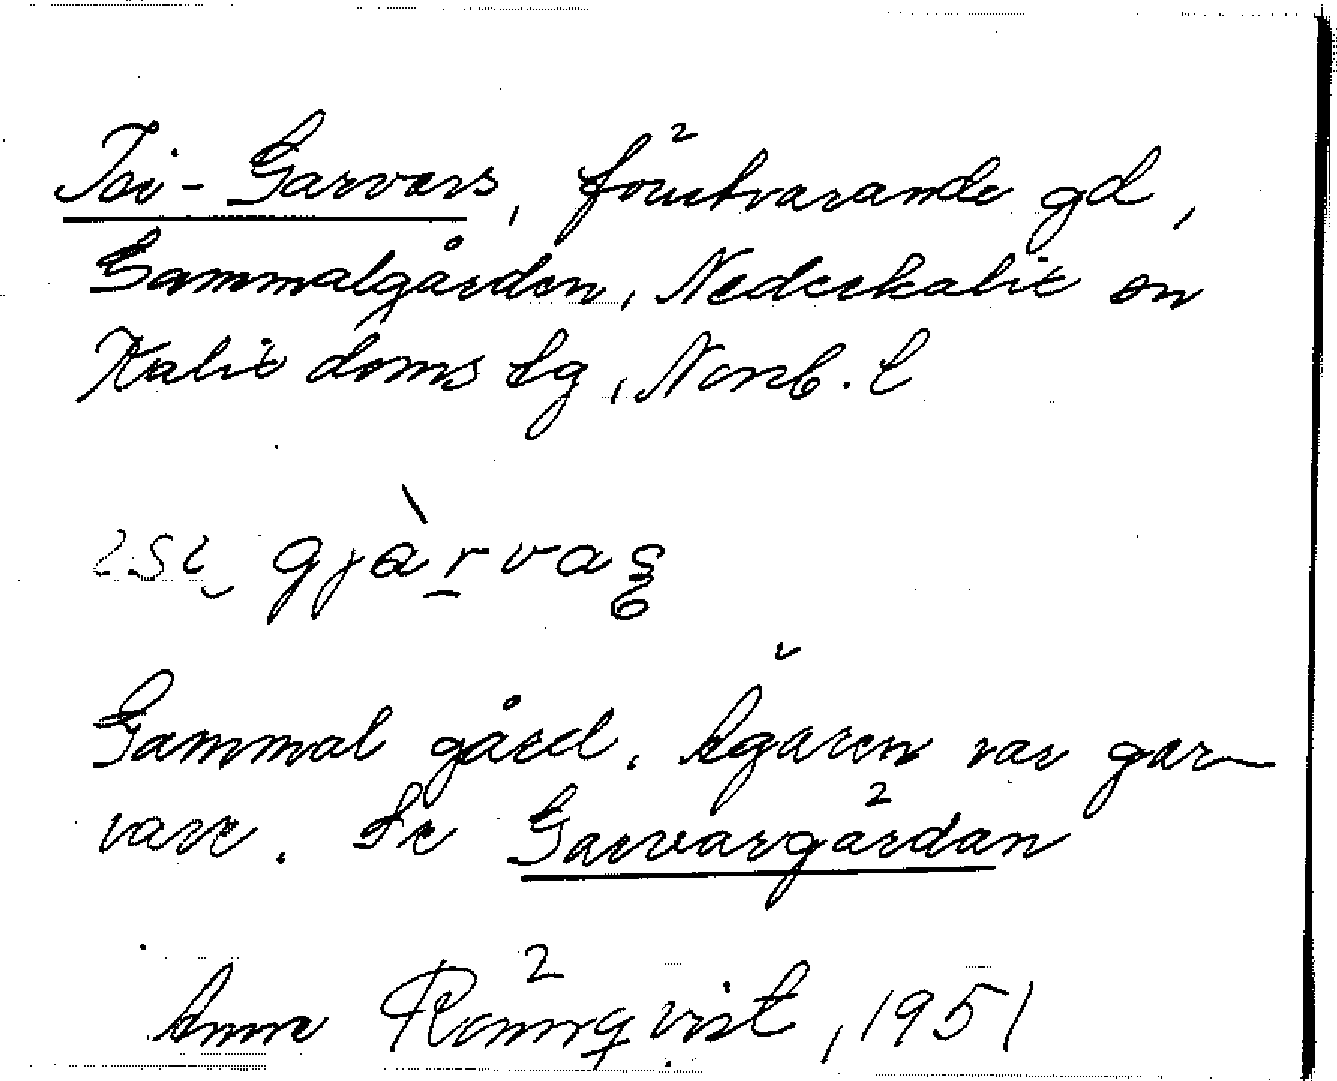 Isi-Garvars, förutvarande gd,
Gammalgården, Nederkalix sn
Kalix doms lg, Norrb. l
isi gjàrvaş
Gammal gård. Ägaren var gar-
vare. Se Garvargårdan
Anne Rönnqvist, 1951